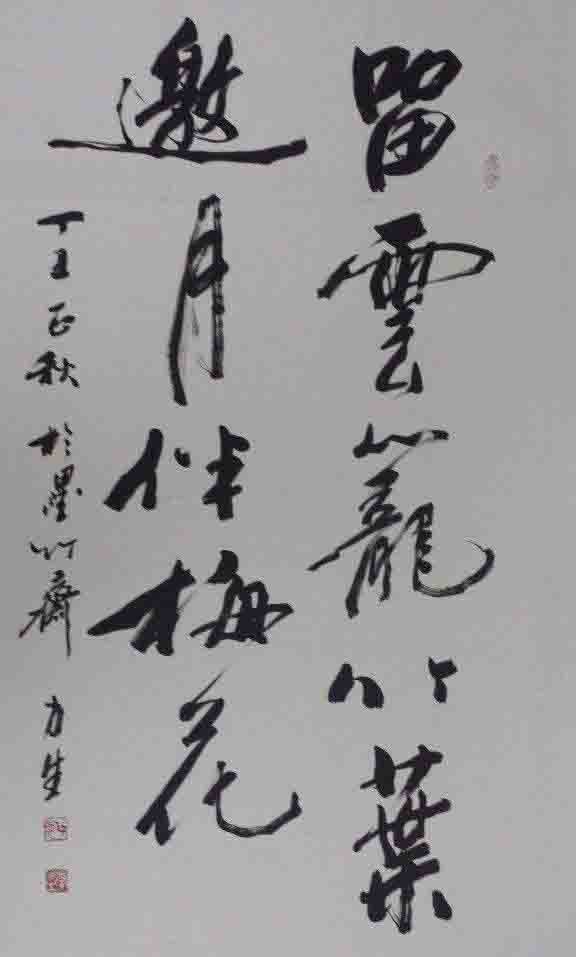 留雲籠竹葉
邀月伴梅花
丁丑正秋於墨竹齋力生